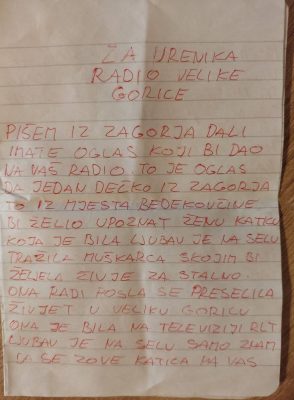 ZA URENIKA
RADIO VELIKE
GORICE
PIŠEM IZ ZAGORJA DALI
IMATE OGLAS KOJI BI DAO
NA VAŠ RADIO. TO JE OGLAS
DA JEDAN DEČKO IZ ZAGORJA
TO IZ MJESTA BEDEKOVČINE
BI ŽELIO UPOZNAT ŽENU KATICU
KOJA JE BILA LJUBAV JE NA SELU
TRAŽILA MUŠKARCA SKOJIM BI
ŽELJELA ŽIVJET ZA STALNO.
ONA RADI POSLA SE PRESELILA
ŽIVJET U VELIKU GORICU
ONA JE BILA NA TELEVIZIJI RLT
LJUBAV JE NA SELU SAMO ZNAM
DA SE ZOVE KATICA NA VAS